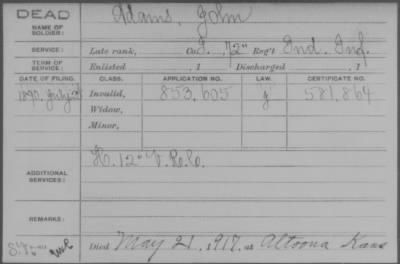 DEAD
NAME OF SOLDIER: Adams, John
SERVICE: Late rank, Co. I, 72" Reg't Ind. Inf.
TERM OF SERVICE: Enlisted , 1 Discharged , 1
DATE OF FILING. CLASS. APPLICATION NO. LAW. CERTIFICATE NO.
1890, July 2 Invalid, 853,605 g 581,864
Widow,
Minor,
ADDITIONAL SERVICES: H. 12" V.R.C.
REMARKS:
Died May 21, 1917, at Altoona Kans